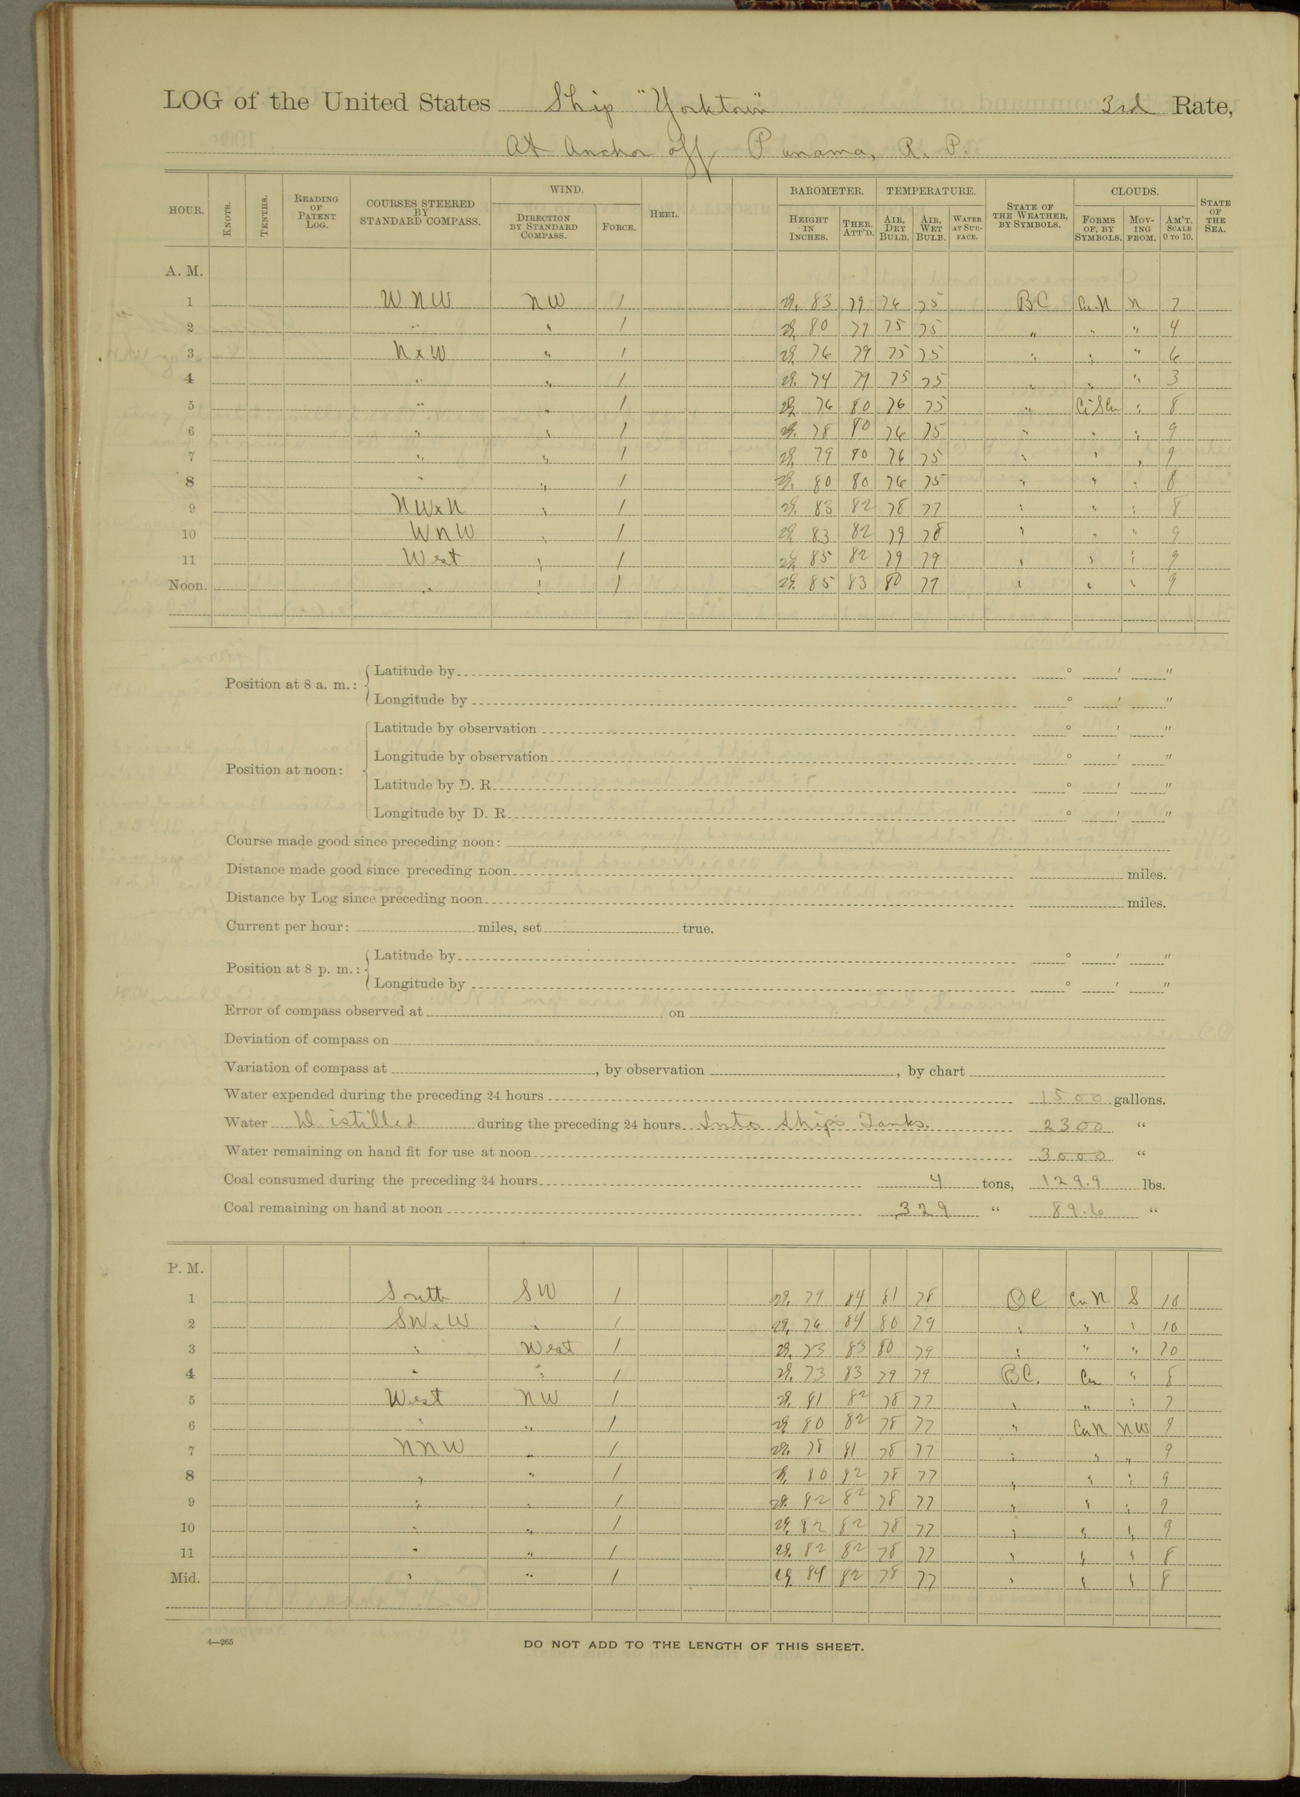 LOG of the United States Ship "Yorktown" 3rd Rate,
At Anchor off Panama, R. P.
HOUR. KNOTS. TENTHS. READING OF PATENT LOG. COURSES STEERED BY STANDARD COMPASS. WIND. DIRECTION BY STANDARD COMPASS. FORCE. HEEL. BAROMETER. HEIGHT IN INCHES. THER. ATT'D. TEMPERATURE. AIR, DRY BULB. AIR, WET BULB. WATER AT SURFACE. STATE OF THE WEATHER, BY SYMBOLS. CLOUDS. FORMS OF, BY SYMBOLS. MOVING FROM. AM'T. SCALE 0 TO 10. STATE OF THE SEA.
A. M.
1 WNW NW 1 29. 83 79 76 75 BC Cu.N N 7
2 " " 1 29. 80 79 75 75 " " " 4
3 NxW " 1 29. 76 79 75 75 " " " 6
4 " " 1 29. 74 79 75 75 " " " 3
5 " " 1 29. 76 80 76 75 " Ci S Cu " 8
6 " " 1 29. 78 80 76 75 " " " 9
7 " " 1 29. 79 80 76 75 " " " 9
8 " " 1 29. 80 80 76 75 " " " 8
9 NWxN " 1 29. 83 82 78 77 " " " 8
10 WNW " 1 29. 83 82 79 78 " " " 9
11 West " 1 29. 85 82 79 79 " " " 9
Noon. " " 1 29. 85 83 80 77 " " " 9
Position at 8 a. m.: Latitude by ° ′ ″
Longitude by ° ′ ″
Position at noon: Latitude by observation ° ′ ″
Longitude by observation ° ′ ″
Latitude by D. R. ° ′ ″
Longitude by D. R. ° ′ ″
Course made good since preceding noon:
Distance made good since preceding noon miles.
Distance by Log since preceding noon miles.
Current per hour: miles, set true.
Position at 8 p. m.: Latitude by ° ′ ″
Longitude by ° ′ ″
Error of compass observed at on
Deviation of compass on
Variation of compass at , by observation , by chart
Water expended during the preceding 24 hours 1500 gallons.
Water Distilled during the preceding 24 hours Into Ship's Tanks. 2300 "
Water remaining on hand fit for use at noon 3000 "
Coal consumed during the preceding 24 hours 4 tons, 129.9 lbs.
Coal remaining on hand at noon 329 " 89.6 "
P. M.
1 South SW 1 29. 79 84 81 78 OC Cu N S 10
2 SWxW " 1 29. 76 84 80 79 " " " 10
3 " West 1 29. 73 83 80 79 " " " 10
4 " " 1 29. 73 83 79 79 BC. Cu " 8
5 West NW 1 29. 81 82 78 77 " " " 7
6 " " 1 29. 80 82 78 77 " Cu N NW 9
7 NNW " 1 29. 78 81 78 77 " " " 9
8 " " 1 29. 80 82 78 77 " " " 9
9 " " 1 29. 82 82 78 77 " " " 9
10 " " 1 29. 82 82 78 77 " " " 9
11 " " 1 29. 82 82 78 77 " " " 8
Mid. " " 1 29. 84 82 78 77 " " " 8
4—265
DO NOT ADD TO THE LENGTH OF THIS SHEET.